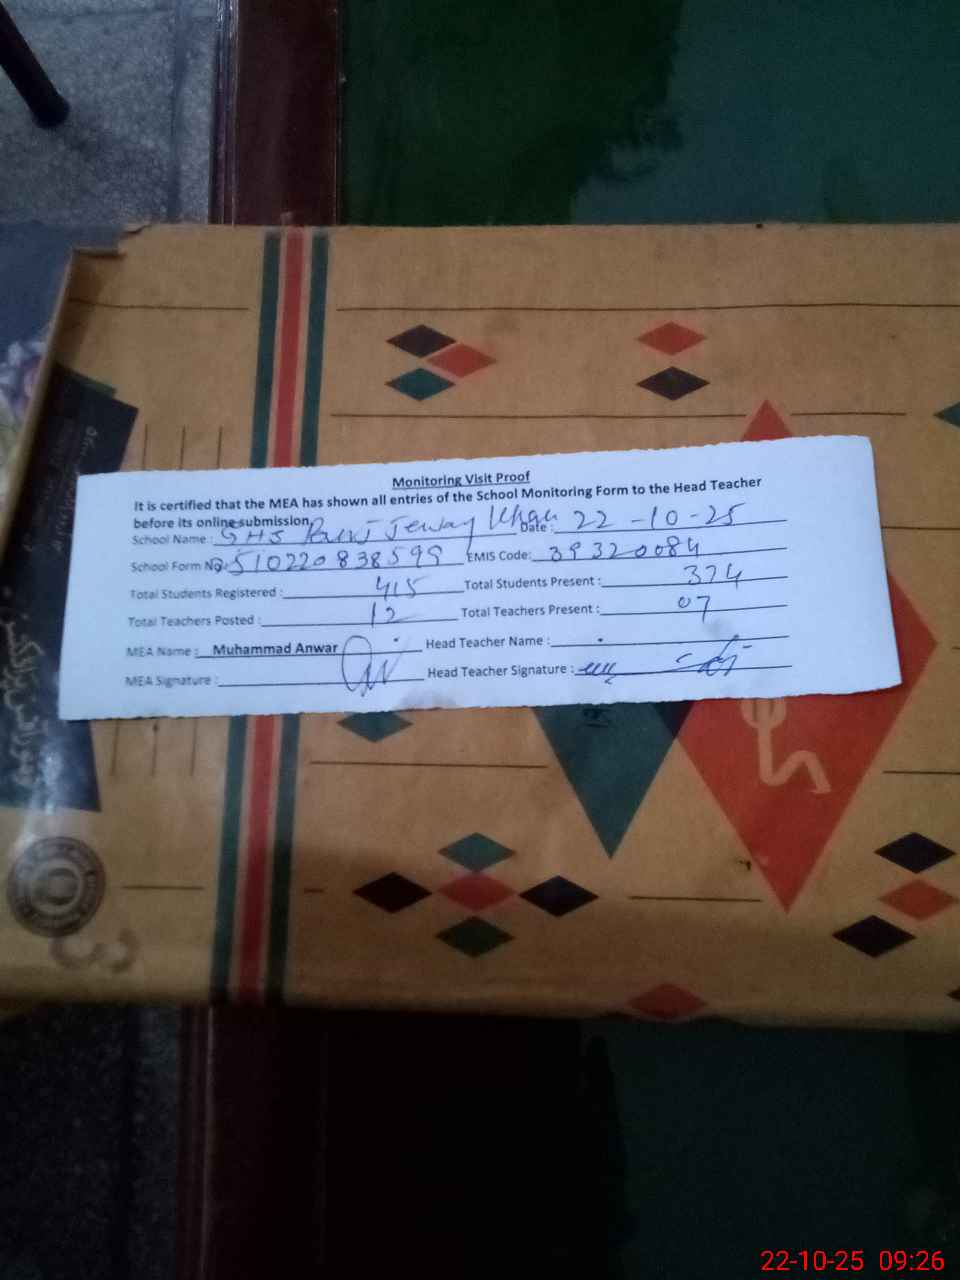 Monitoring Visit Proof
It is certified that the MEA has shown all entries of the School Monitoring Form to the Head Teacher
before its online submission.
School Name : GHS Jeway Khan Date : 22-10-25
School Form No: 510220838599 EMIS Code: 39320084
Total Students Registered : 415 Total Students Present : 374
Total Teachers Posted : 12 Total Teachers Present : 07
MEA Name : Muhammad Anwar Head Teacher Name :
MEA Signature : Head Teacher Signature :
22-10-25 09:26